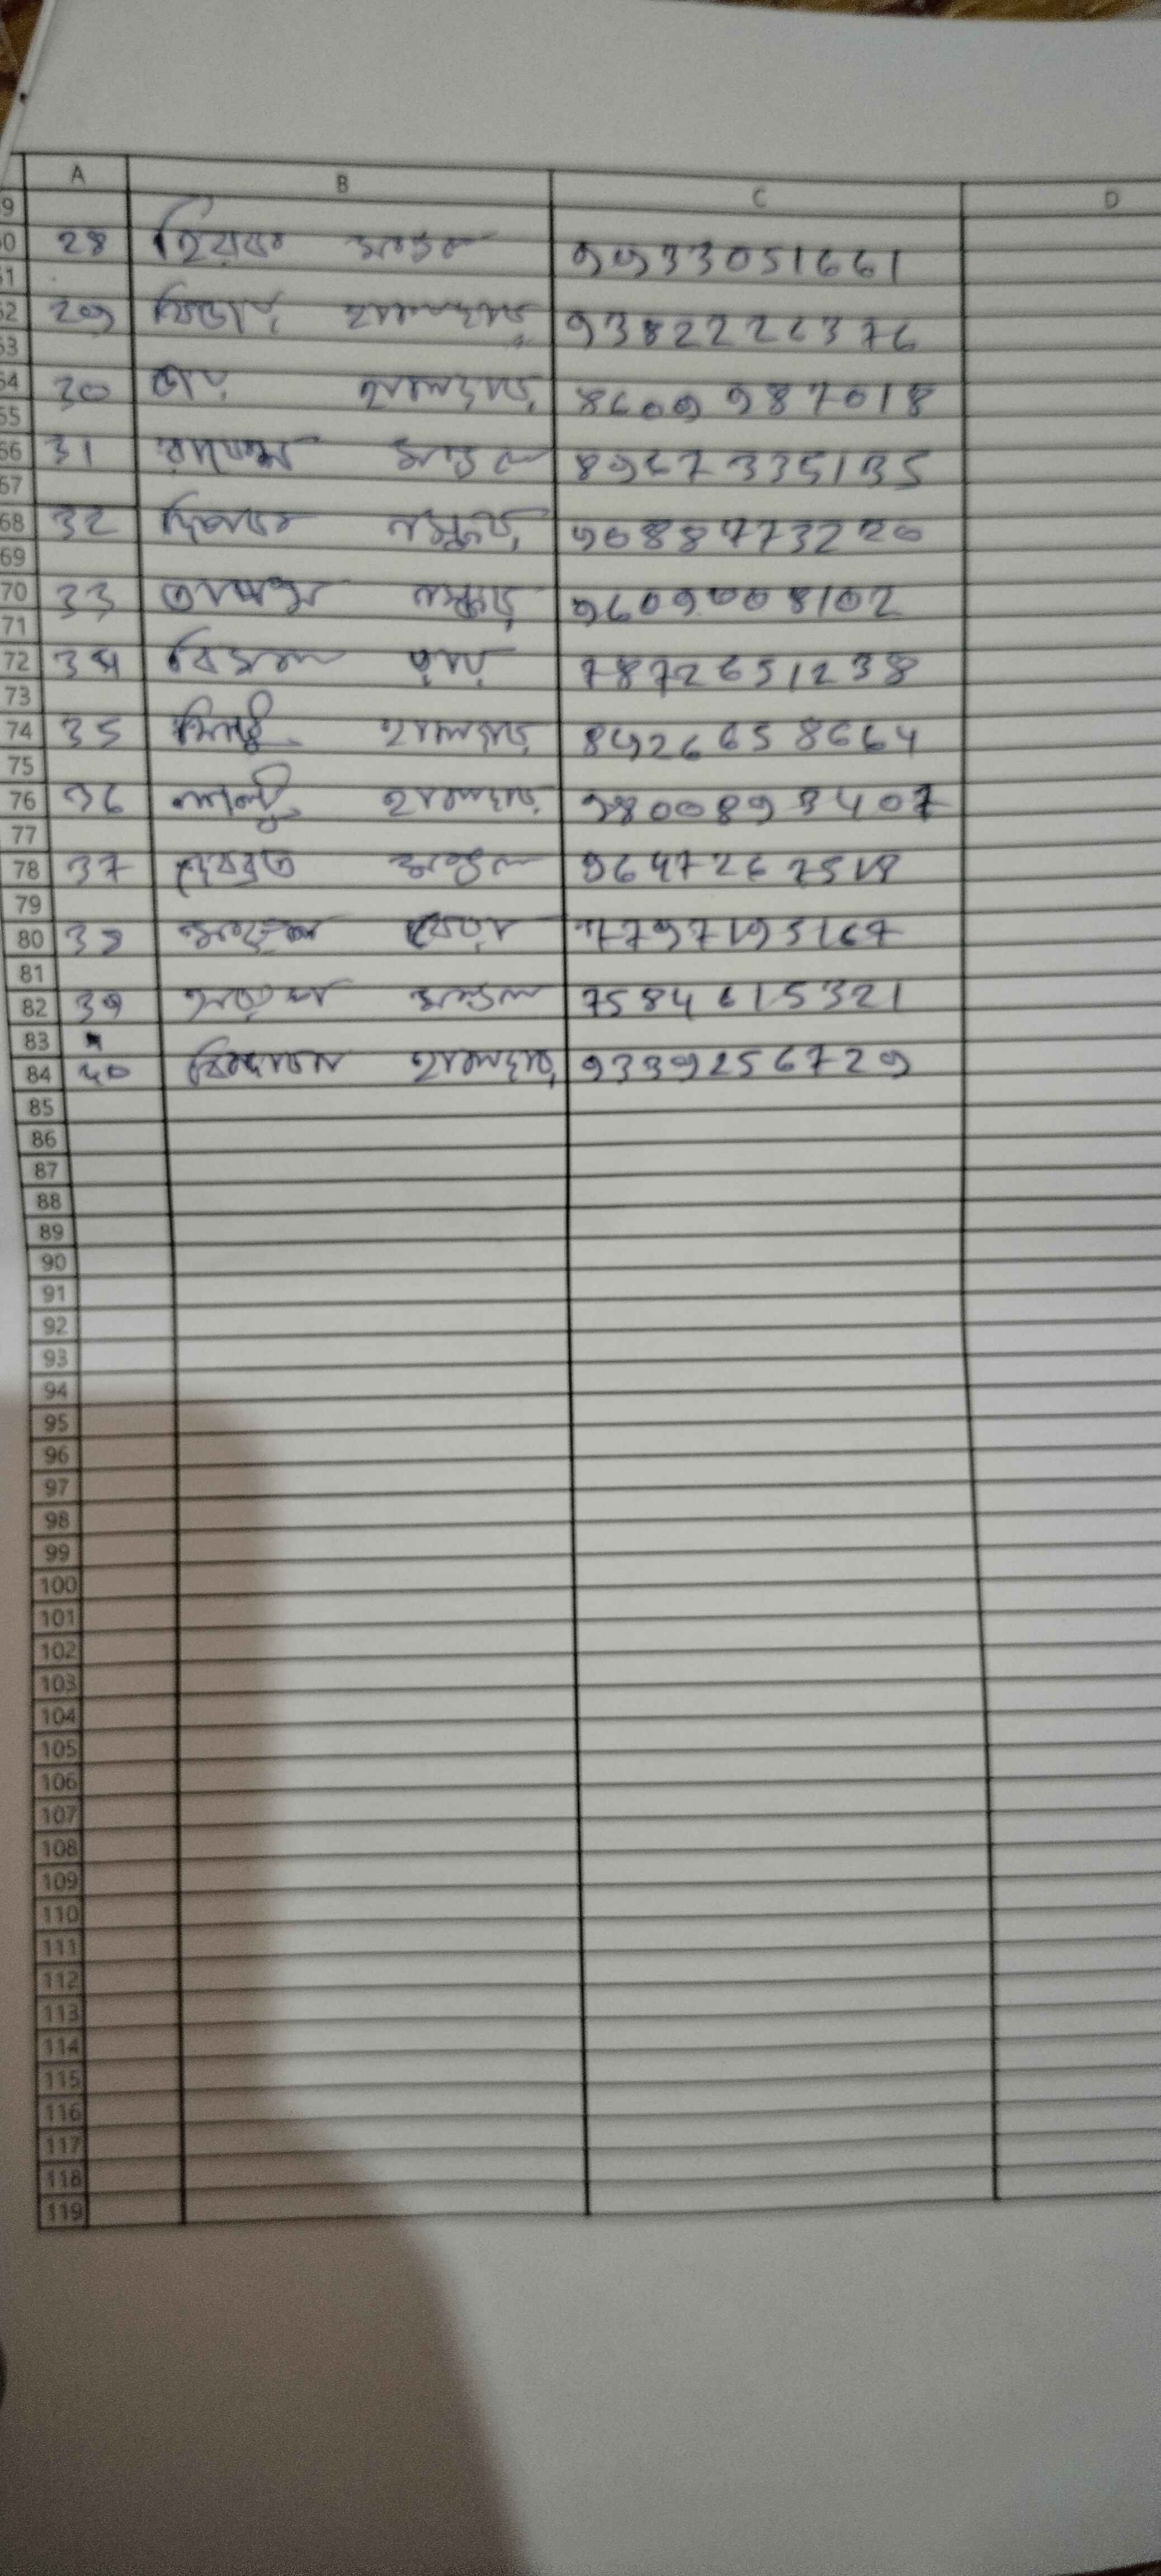 A B C D
9
60 28 হিরক মন্ডল 9933051661
61
62 29 হালদার 9382226376
63
64 30 হালদার 8609987018
65
66 31 মন্ডল 8967335135
67
68 32 দিপক নস্কর 9088773220
69
70 33 তাপস নস্কর 9609008102
71
72 34 বিমল 7872651238
73
74 35 পিন্টু হালদার 8926658664
75
76 36 হালদার 9800893407
77
78 37 দেবব্রত মন্ডল 9647267518
79
80 38 7797195167
81
82 39 মন্ডল 7584615321
83
84 40 হালদার 9339256729
85
86
87
88
89
90
91
92
93
94
95
96
97
98
99
100
101
102
103
104
105
106
107
108
109
110
111
112
113
114
115
116
117
118
119